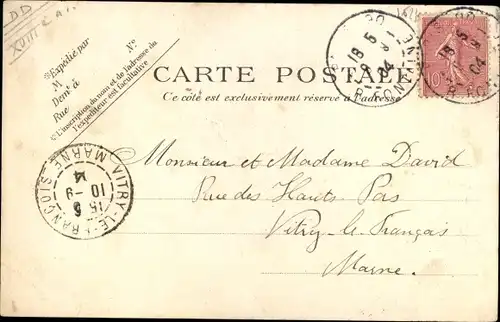 DD
XVIII
*Expédié par
N°
M
Demt à
Rue
*L'inscription du nom et de l'adresse de
l'expéditeur est facultative
CARTE POSTALE
Ce côté est exclusivement réservé à l'adresse
18 5
04
R.
10
18 5
04
VITRY-LE-FRANÇOIS
MARNE
10 - 9
15
Monsieur et Madame David
Rue des Hauts Pas
Vitry-le-Français
Marne.